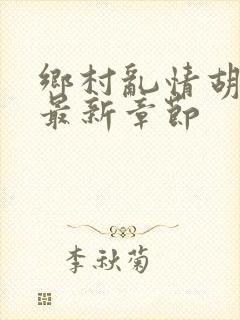 鄉村亂情胡
最新章節
李秋菊